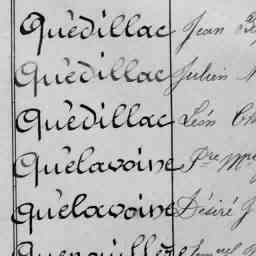 Quédillac Jean
Quédillac Julien
Quédillac Léon
Quélavoine Pre
Quélavoine Désiré